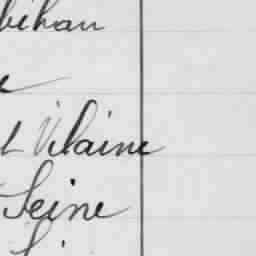 bihan
e
t Vilaine
Seine